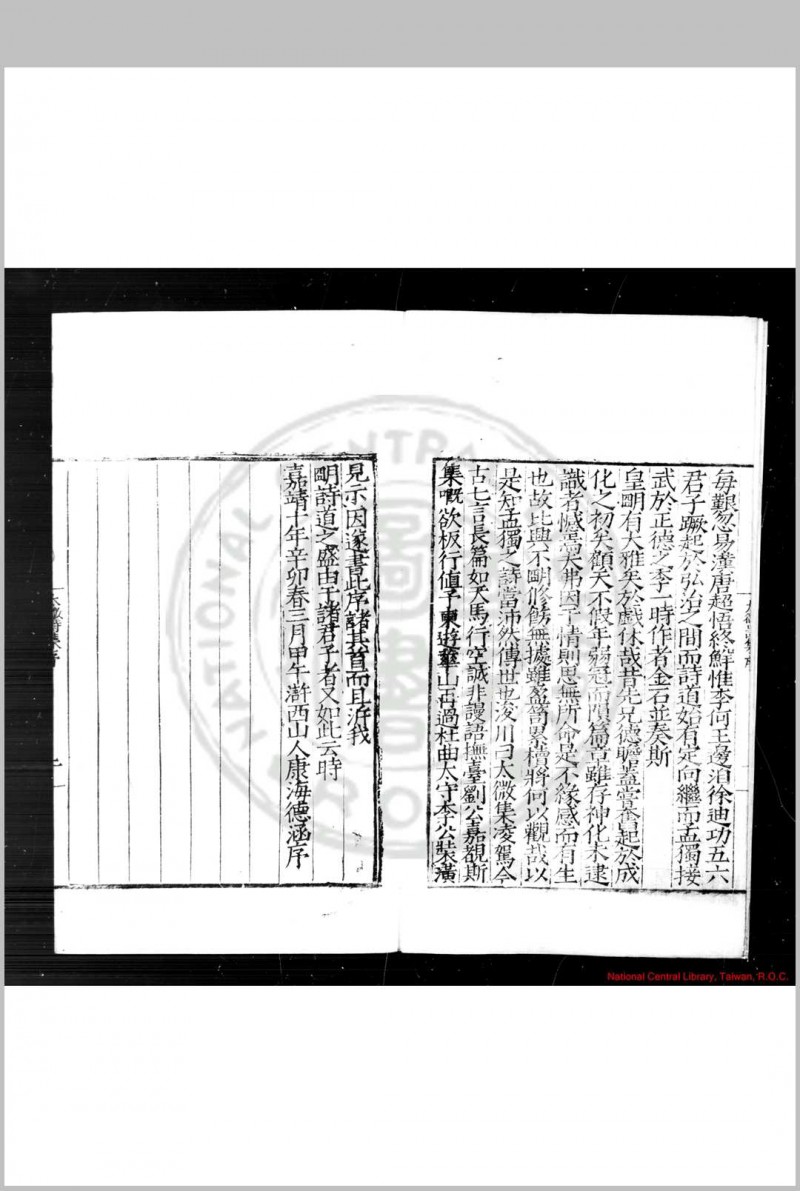 每艱忽易漢唐超悟終鮮惟李何王邊洎徐迪功五六
君子蹶起於弘治之間而詩道始有定向繼而孟獨接
武於正德之季一時作者金石並奏斯
皇明有大雅矣於戲休哉昔先兄德瞻蓋嘗奮起於成
化之初矣顧天不假年弱冠而隕篇章雖存神化未逮
識者憾焉夫弗因于情則思無所命是不緣感而有生
也故比興不明修飭無據雖盈笥累櫝將何以觀哉以
是知孟獨之詩當沛然傳世也浚川曰太微集凌駕今
古七言長篇如天馬行空誠非謾語撫臺劉公嘉覩斯
集嘅欲板行值予東遊華山再過杜曲太守李公裝潢
見示因遂書此序諸其首而且泝我
明詩道之盛由于諸君子者又如此云時
嘉靖十年辛卯春三月甲午滸西山人康海德涵序
National Central Library, Taiwan, R.O.C.
NATIONAL CENTRAL
圖書